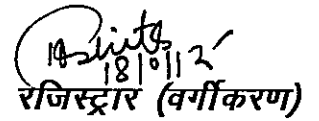 18/01/12
रजिस्ट्रार (वर्गीकरण)